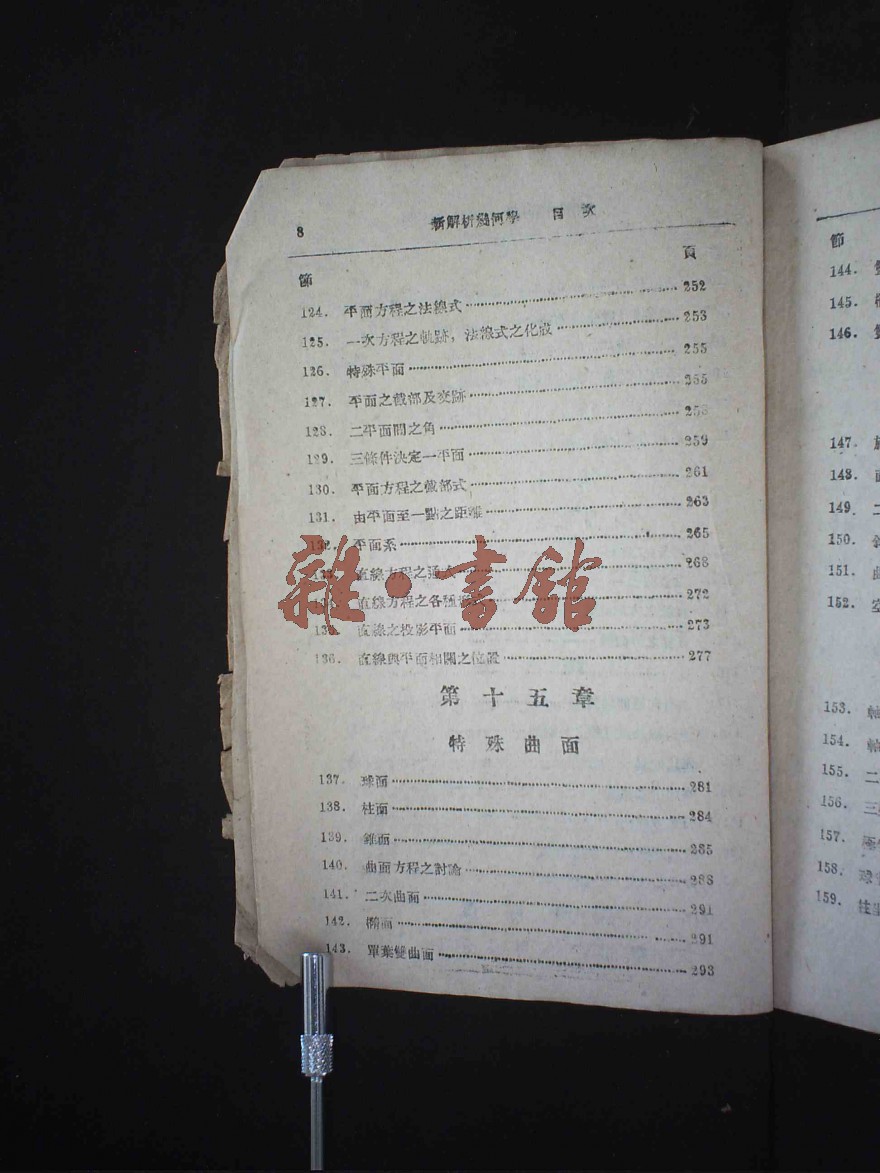 8 新解析幾何學 目次
節 頁
124. 平面方程之法線式 252
125. 一次方程之軌跡，法線式之化成 253
126. 特殊平面 255
127. 平面之截部及交跡 255
128. 二平面間之角 258
129. 三條件決定一平面 259
130. 平面方程之截部式 261
131. 由平面至一點之距離 263
132. 平面系 265
直線方程之通式 268
直線方程之各種 272
135. 直線之投影平面 273
136. 直線與平面相關之位置 277
第十五章
特殊曲面
137. 球面 281
138. 柱面 284
139. 錐面 285
140. 曲面方程之討論 288
141. 二次曲面 291
142. 橢面 291
143. 單葉雙曲面 293
雜·書館
節
144.
145.
146.
147.
148.
149. 二
150.
151.
152.
153.
154.
155. 二
156. 三
157.
158. 球
159. 柱